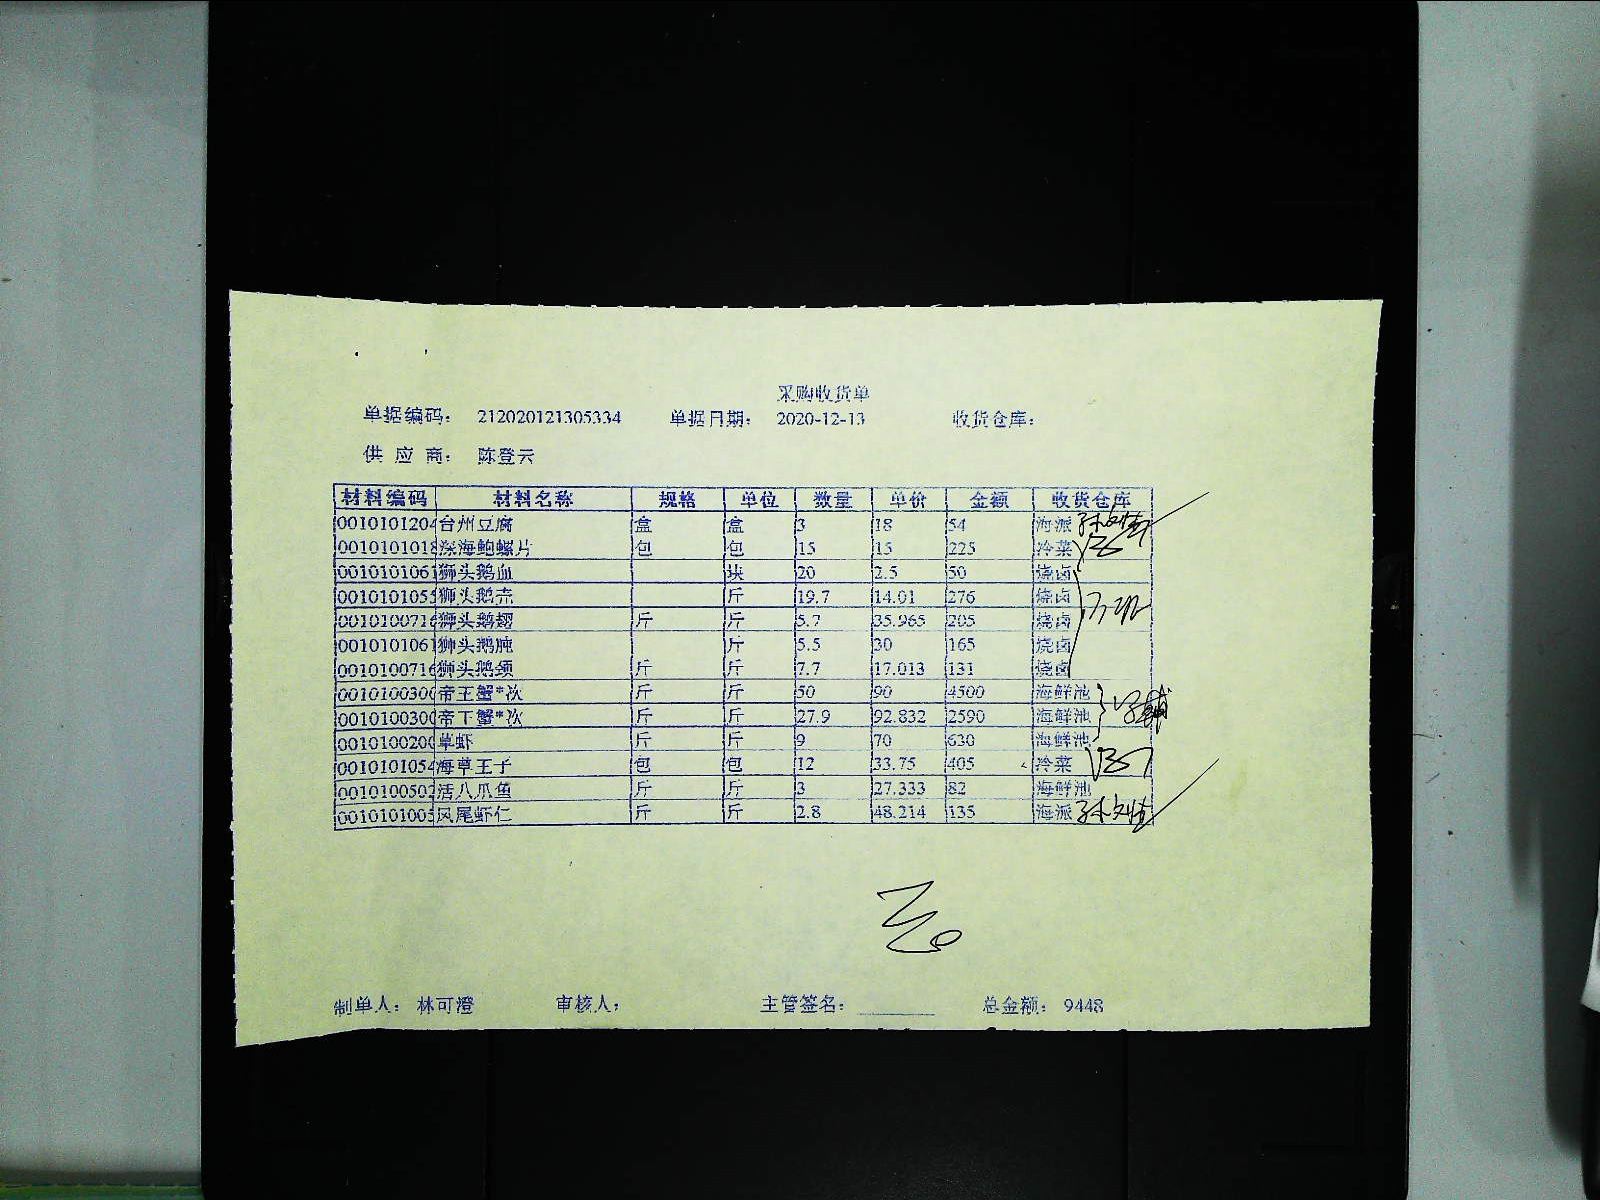 采购收货单
单据编码: 212020121305334 单据日期: 2020-12-13 收货仓库:
供 应 商: 陈登云
材料编码 材料名称 规格 单位 数量 单价 金额 收货仓库
0010101204 台州豆腐 盒 盒 3 18 54 海派 孙文情
0010101018 深海鲍螺片 包 包 15 15 225 冷菜
0010101061 狮头鹅血 块 20 2.5 50 烧卤
0010101055 狮头鹅壳 斤 19.7 14.01 276 烧卤
0010100716 狮头鹅翅 斤 斤 5.7 35.965 205 烧卤
0010101061 狮头鹅肫 斤 5.5 30 165 烧卤
0010100716 狮头鹅颈 斤 斤 7.7 17.013 131 烧卤
0010100300 帝王蟹*次 斤 斤 50 90 4500 海鲜池
0010100300 帝王蟹*次 斤 斤 27.9 92.832 2590 海鲜池
0010100200 草虾 斤 斤 9 70 630 海鲜池
0010101054 海草王子 包 包 12 33.75 405 冷菜
0010100502 活八爪鱼 斤 斤 3 27.333 82 海鲜池
0010101005 凤尾虾仁 斤 斤 2.8 48.214 135 海派 孙文情
制单人: 林可澄 审核人: 主管签名: 总金额: 9448